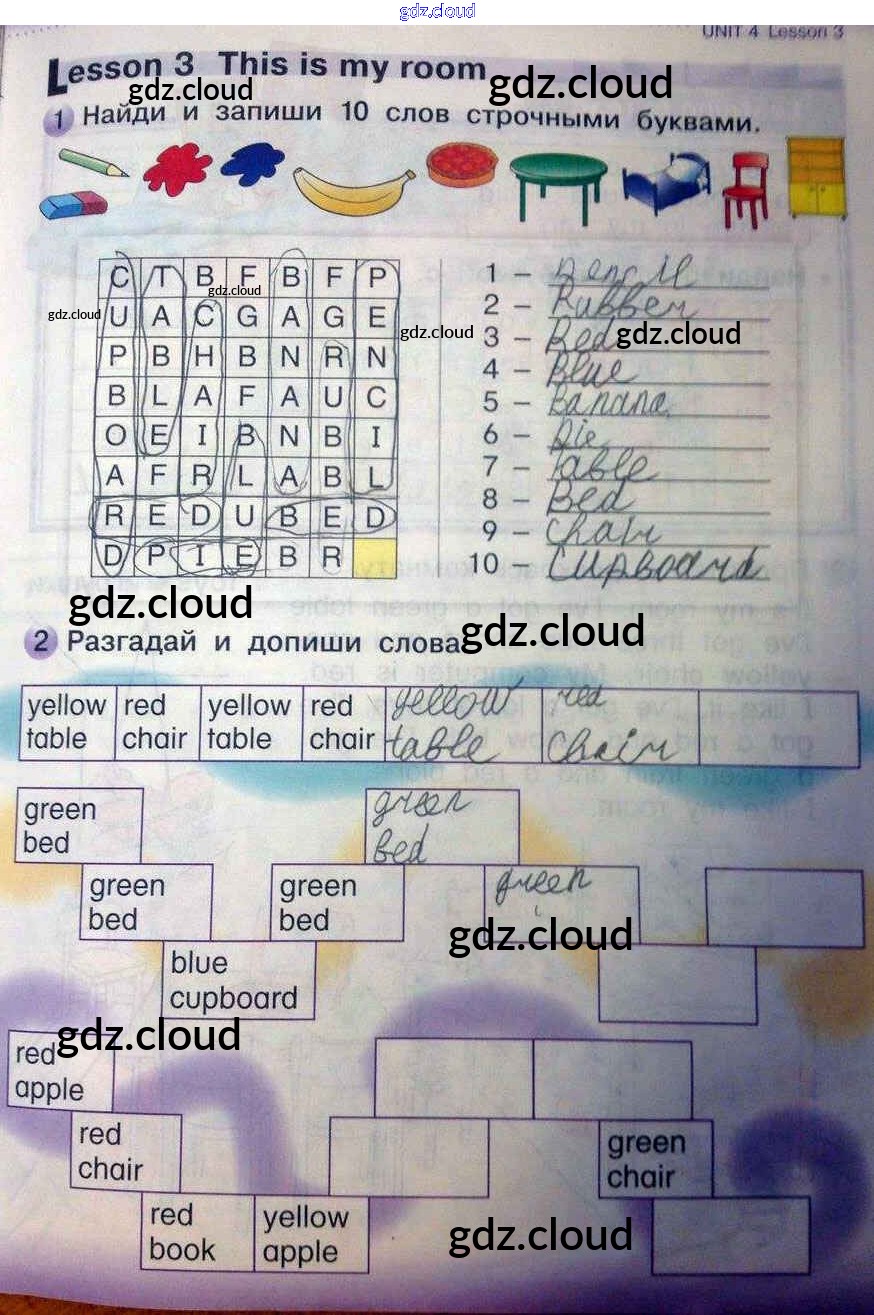 gdz.cloud
UNIT 4 Lesson 3
Lesson 3 This is my room
gdz.cloud
gdz.cloud
1 Найди и запиши 10 слов строчными буквами.
C T B F B F P
gdz.cloud
U A C G A G E
gdz.cloud
P B H B N R N
B L A F A U C
O E I B N B I
A F R L A B L
R E D U B E D
D P I E B R
1 – Pencil
2 – Rubber
3 – Red
gdz.cloud
gdz.cloud
4 – Blue
5 – Banana
6 – Pie
7 – Table
8 – Bed
9 – Chair
10 Cupboard
gdz.cloud
2 Разгадай и допиши слова
gdz.cloud
yellow red yellow red yellow red
table chair table chair table chair
green green
bed bed
green green green
bed bed
gdz.cloud
blue
cupboard
gdz.cloud
red
apple
red green
chair chair
red yellow
book apple
gdz.cloud